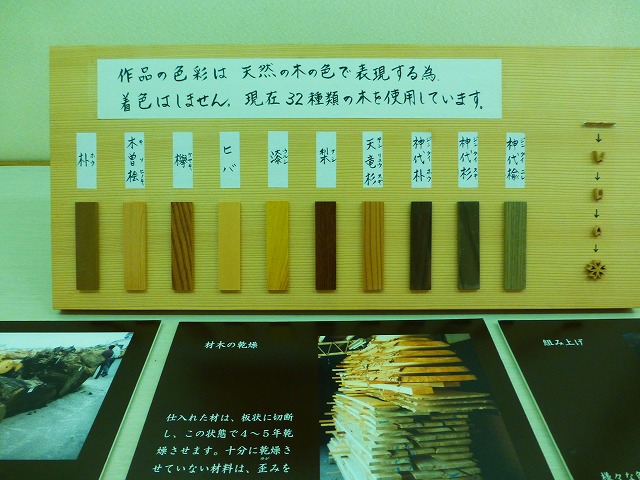 作品の色彩は 天然の木の色で表現する為
着色はしません。現在32種類の木を使用しています。
朴 ホウ
木曽桧 キソヒノキ
欅 ケヤキ
ヒバ
漆 ウルシ
天竜杉
神代朴
神代杉
神代楡
材木の乾燥
仕入れた材は、板状に切断
し、この状態で4～5年乾
燥させます。十分に乾燥さ
せていない材料は、歪みを
組み上げ